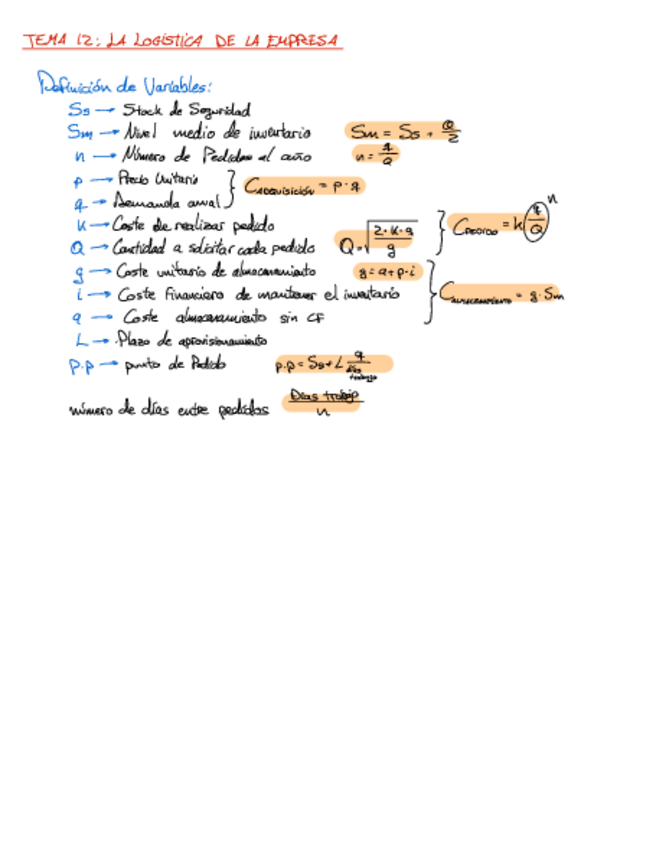 TEMA 12: LA LOGÍSTICA DE LA EMPRESA
Definición de Variables:
Ss → Stock de Seguridad
Sm → Nivel medio de inventario Sm = Ss + Q/2
n → Número de Pedidos al año n = q/Q
p → Precio Unitario
q → Demanda anual } CADQUISICIÓN = p · q
K → Coste de realizar pedido
Q → Cantidad a solicitar cada pedido Q = √(2·K·q/g) } CPEDIDO = k (q/Q) n
g → Coste unitario de almacenamiento g = a + p·i
i → Coste Financiero de mantener el inventario } CALMACENAMIENTO = g · Sm
a → Coste almacenamiento sin CF
L → Plazo de aprovisionamiento
P.p → punto de Pedido p.p = Ss + L q/días trabajo
número de días entre pedidos Días trabaj/n